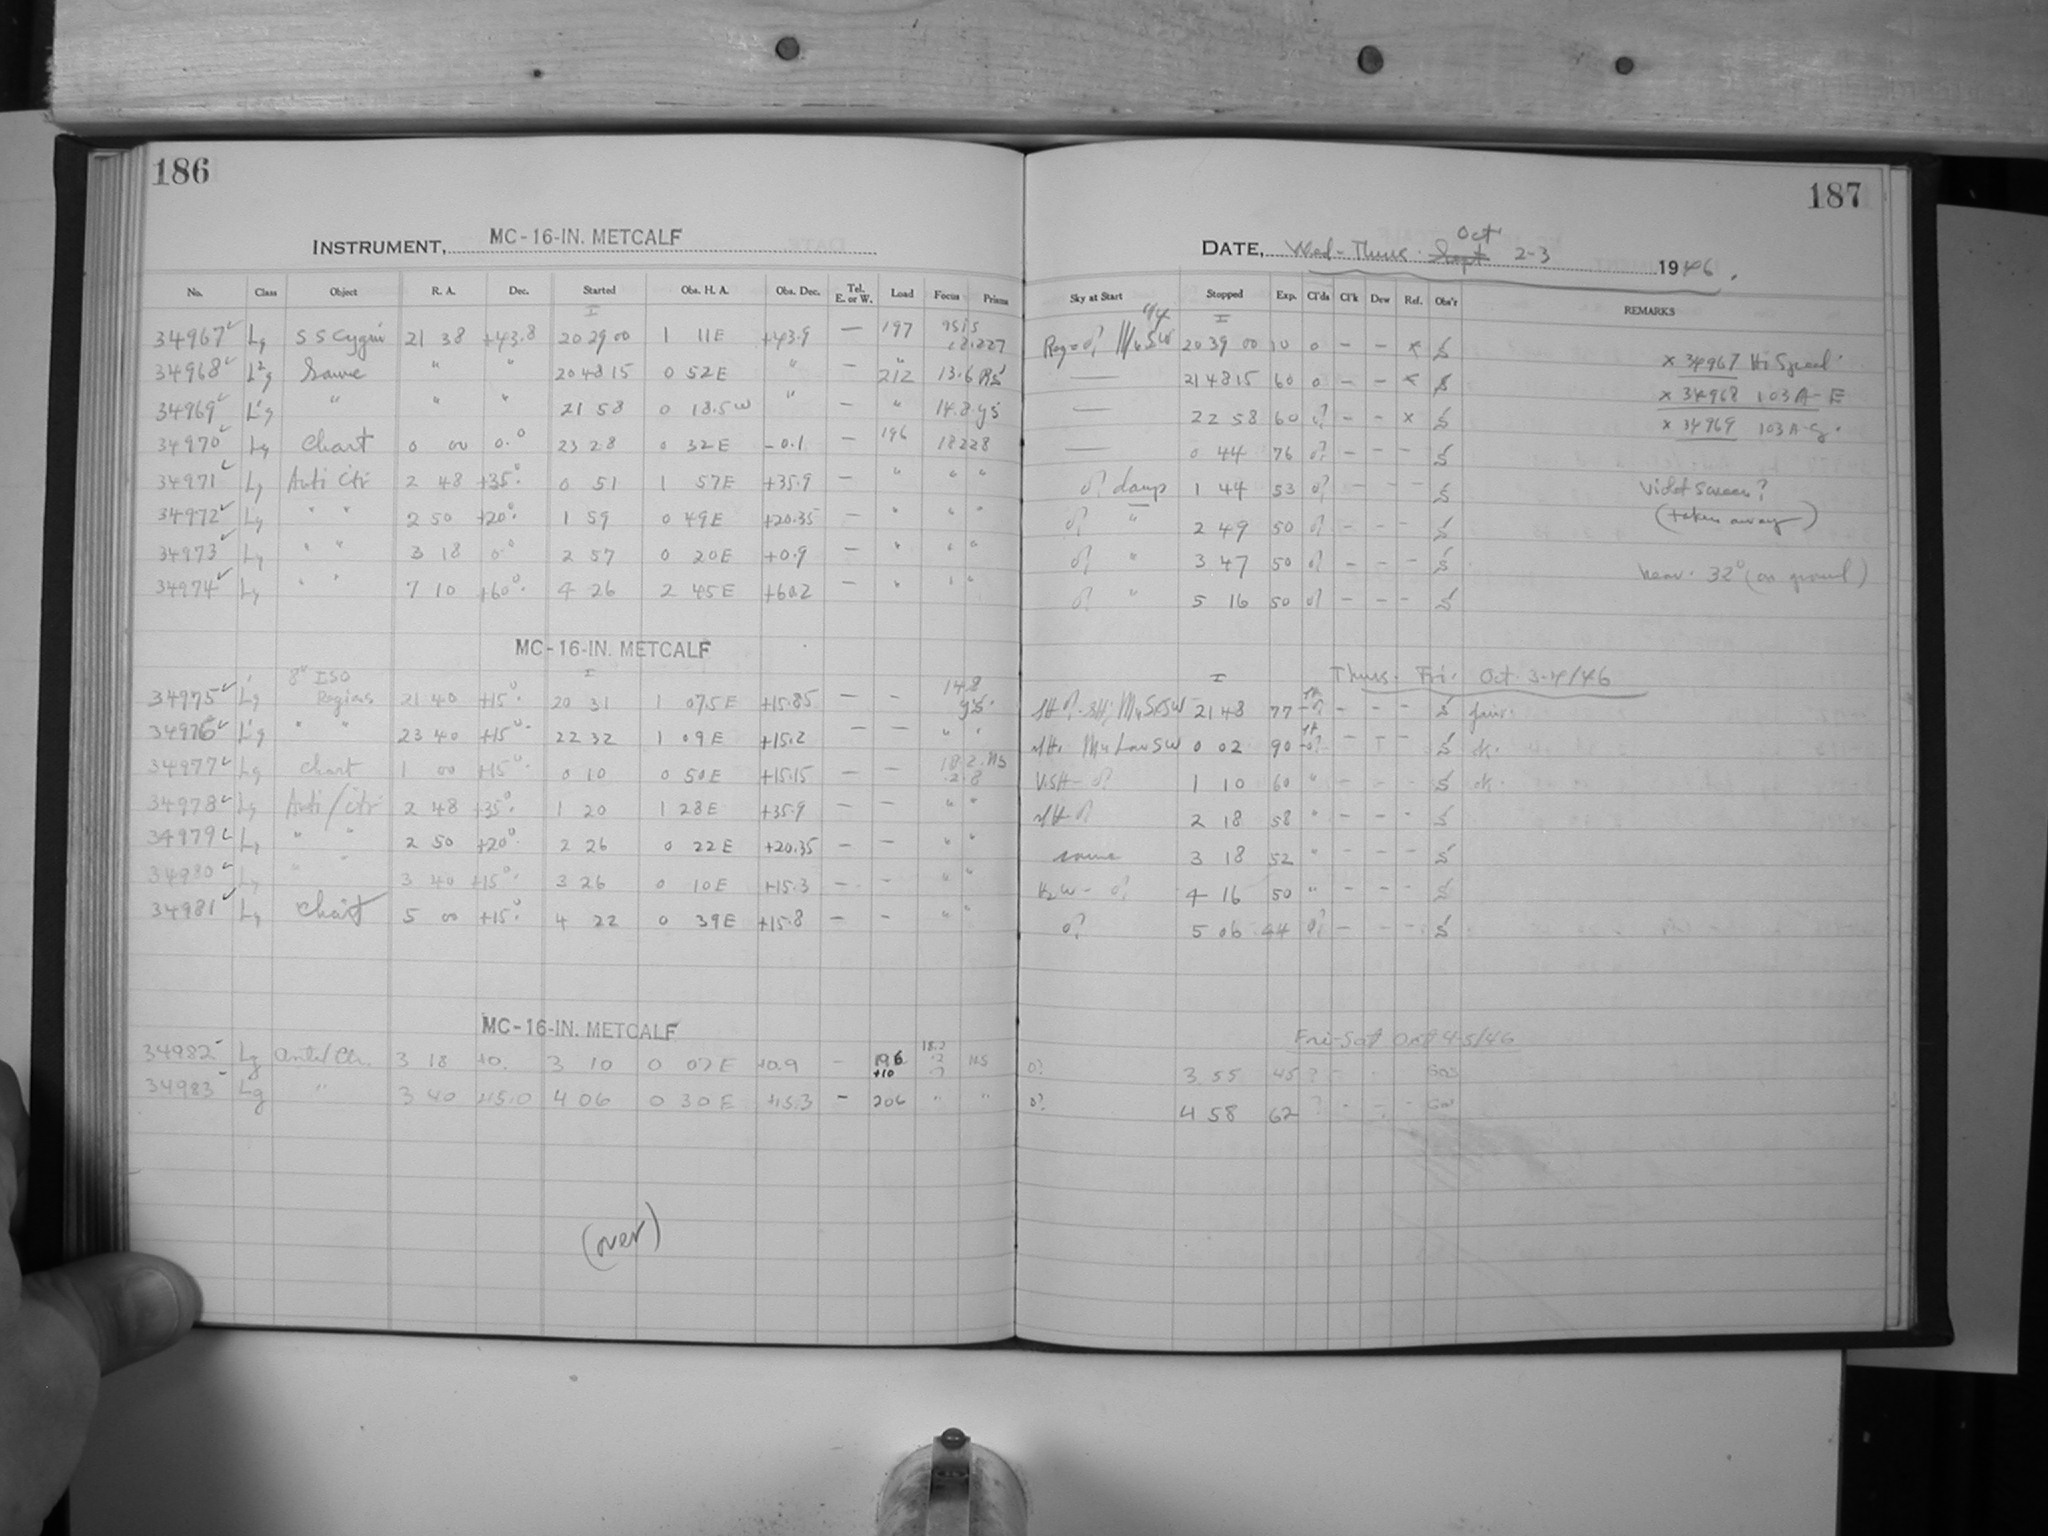 186
INSTRUMENT, MC-16-IN. METCALF
No. Class Object R. A. Dec. Started Obs. H. A. Obs. Dec. Tel. E. or W. Load Focus Prisms
I
34967 Lg SS Cygni 21 38 +43.8 20 29 00 1 11E +43.9 — 197
34968 Same " " 20 48 15 0 52E " — 212 13.6
34969 " " " 21 58 0 18.5W " — " 14.8 ys
34970 Lg Chart 0 00 0.0 23 28 0 32E -0.1 — 196 18228
34971 Lg Anti Ctr 2 48 +35° 0 51 1 57E +35.9 — " " "
34972 Lg " " 2 50 +20° 1 59 0 49E +20.35 — " " "
34973 Lg " " 3 18 0° 2 57 0 20E +0.9 — " " "
34974 Lg " " 7 10 +60° 4 26 2 45E +60.2 — " " "
MC-16-IN. METCALF
34975 Lg Regions 21 40 +15° 20 31 1 07.5E +15.85 — — 14.8
34976 Lg " " 23 40 +15° 22 32 1 09E +15.2 — — " "
34977 Lg Chart 1 00 +15° 0 10 0 50E +15.15 — —
34978 Lg Anti/Ctr 2 48 +35° 1 20 1 28E +35.9 — — " "
34979 Lg " " 2 50 +20° 2 26 0 22E +20.35 — — " "
34980 Lg " " 3 40 +15° 3 26 0 10E +15.3 — — " "
34981 Lg Chart 5 00 +15° 4 22 0 39E +15.8 — — " "
MC-16-IN. METCALF
34982 Lg Anti/Ctr. 3 18 +0. 3 10 0 07E +0.9 - 196 +10
34983 Lg " 3 40 +15.0 4 06 0 30E +15.3 - 206 " "
(over)
187
DATE, Wed-Thurs. Sept Oct 2-3 1946.
Sky at Start Stopped Exp. Cl'ds Cl'k Dew Ref. Obs'r REMARKS
I
20 39 00 10 0 — — x S x 34967 Hi Speed
— 21 48 15 60 0 — — x S x 34968 103A-E
— 22 58 60 0? — — x S x 34969 103A-G.
— 0 44 76 0? — — — S
0? damp 1 44 53 0? — — — S Violet Screen?
0? " 2 49 50 0? — — — S (taken away)
0? " 3 47 50 0? — — — S
0? " 5 16 50 0? — — — S near 32° (on ground)
Thurs. Fri. Oct. 3-4/46
I
21 48 77 — — — S
0 02 90 — — S ok.
1 10 60 " — — — S ok.
2 18 58 " — — - S
same 3 18 52 " — — — S
4 16 50 " — — — S
0? 5 06 44 0? — — — S
Fri-Sat Oct 4-5/46
0? 3 55 45 ? - -
0? 4 58 62 ? - - -